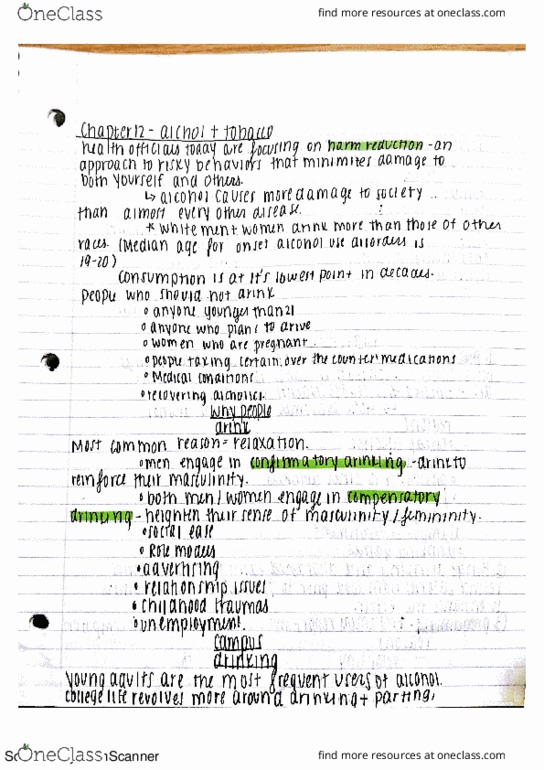 OneClass
find more resources at oneclass.com
Chapter 12 - alcohol + tobacco
health officials today are focusing on harm reduction - an
approach to risky behaviors that minimizes damage to
both yourself and others.
↳ alcohol causes more damage to society
than almost every other disease.
* white men + women drink more than those of other
races. (Median age for onset alcohol use disorders is
19-20)
Consumption is at it's lowest point in decades.
People who should not drink
° anyone younger than 21
° anyone who plans to drive
° women who are pregnant
° people taking certain over the counter medications
° Medical conditions
° recovering alcoholics.
why people
drink
Most common reason - relaxation.
° men engage in confirmatory drinking - drink to
reinforce their masculinity.
° both men/women engage in compensatory
drinking - heighten their sense of masculinity/femininity.
° social ease
° Role models
° advertising
° relationship issues
° childhood traumas
° unemployment.
campus
drinking
Young adults are the most frequent users of alcohol.
College life revolves more around drinking + parting,
OneClass Scanner
find more resources at oneclass.com